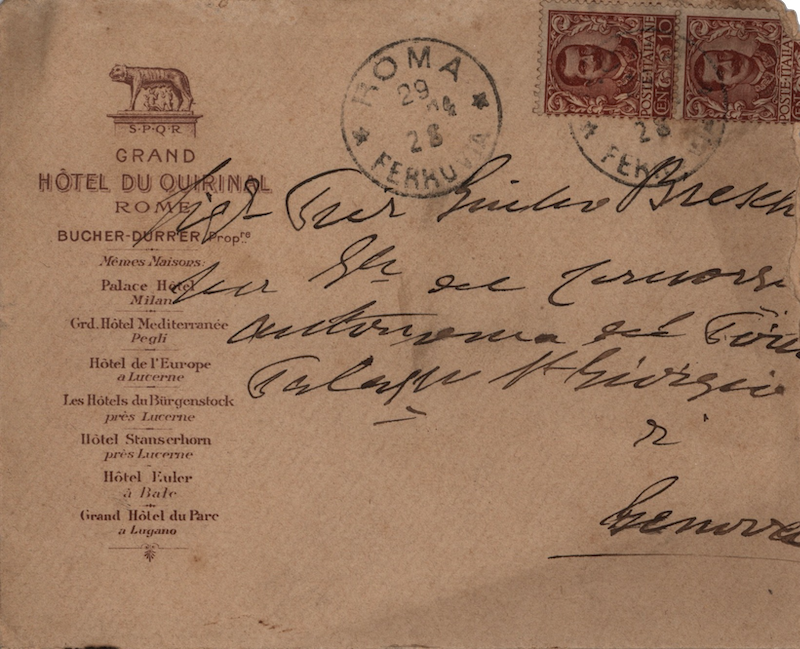 S·P·Q·R
GRAND
HÔTEL DU QUIRINAL
ROME
BUCHER-DURRER, Propʳᵉ
Mêmes Maisons:
Palace Hôtel
Milan
Grd. Hôtel Mediterranée
Pegli
Hôtel de l'Europe
a Lucerne
Les Hôtels du Bürgenstock
près Lucerne
Hôtel Stanserhorn
près Lucerne
Hôtel Euler
à Bale
Grand Hôtel du Parc
a Lugano
ROMA
29
04
28
FERROVIA
POSTE·ITALIANE
CENT. 10
POSTE·ITALIANE
28
del
autonoma del
Palazzo S. Giorgio
Genova